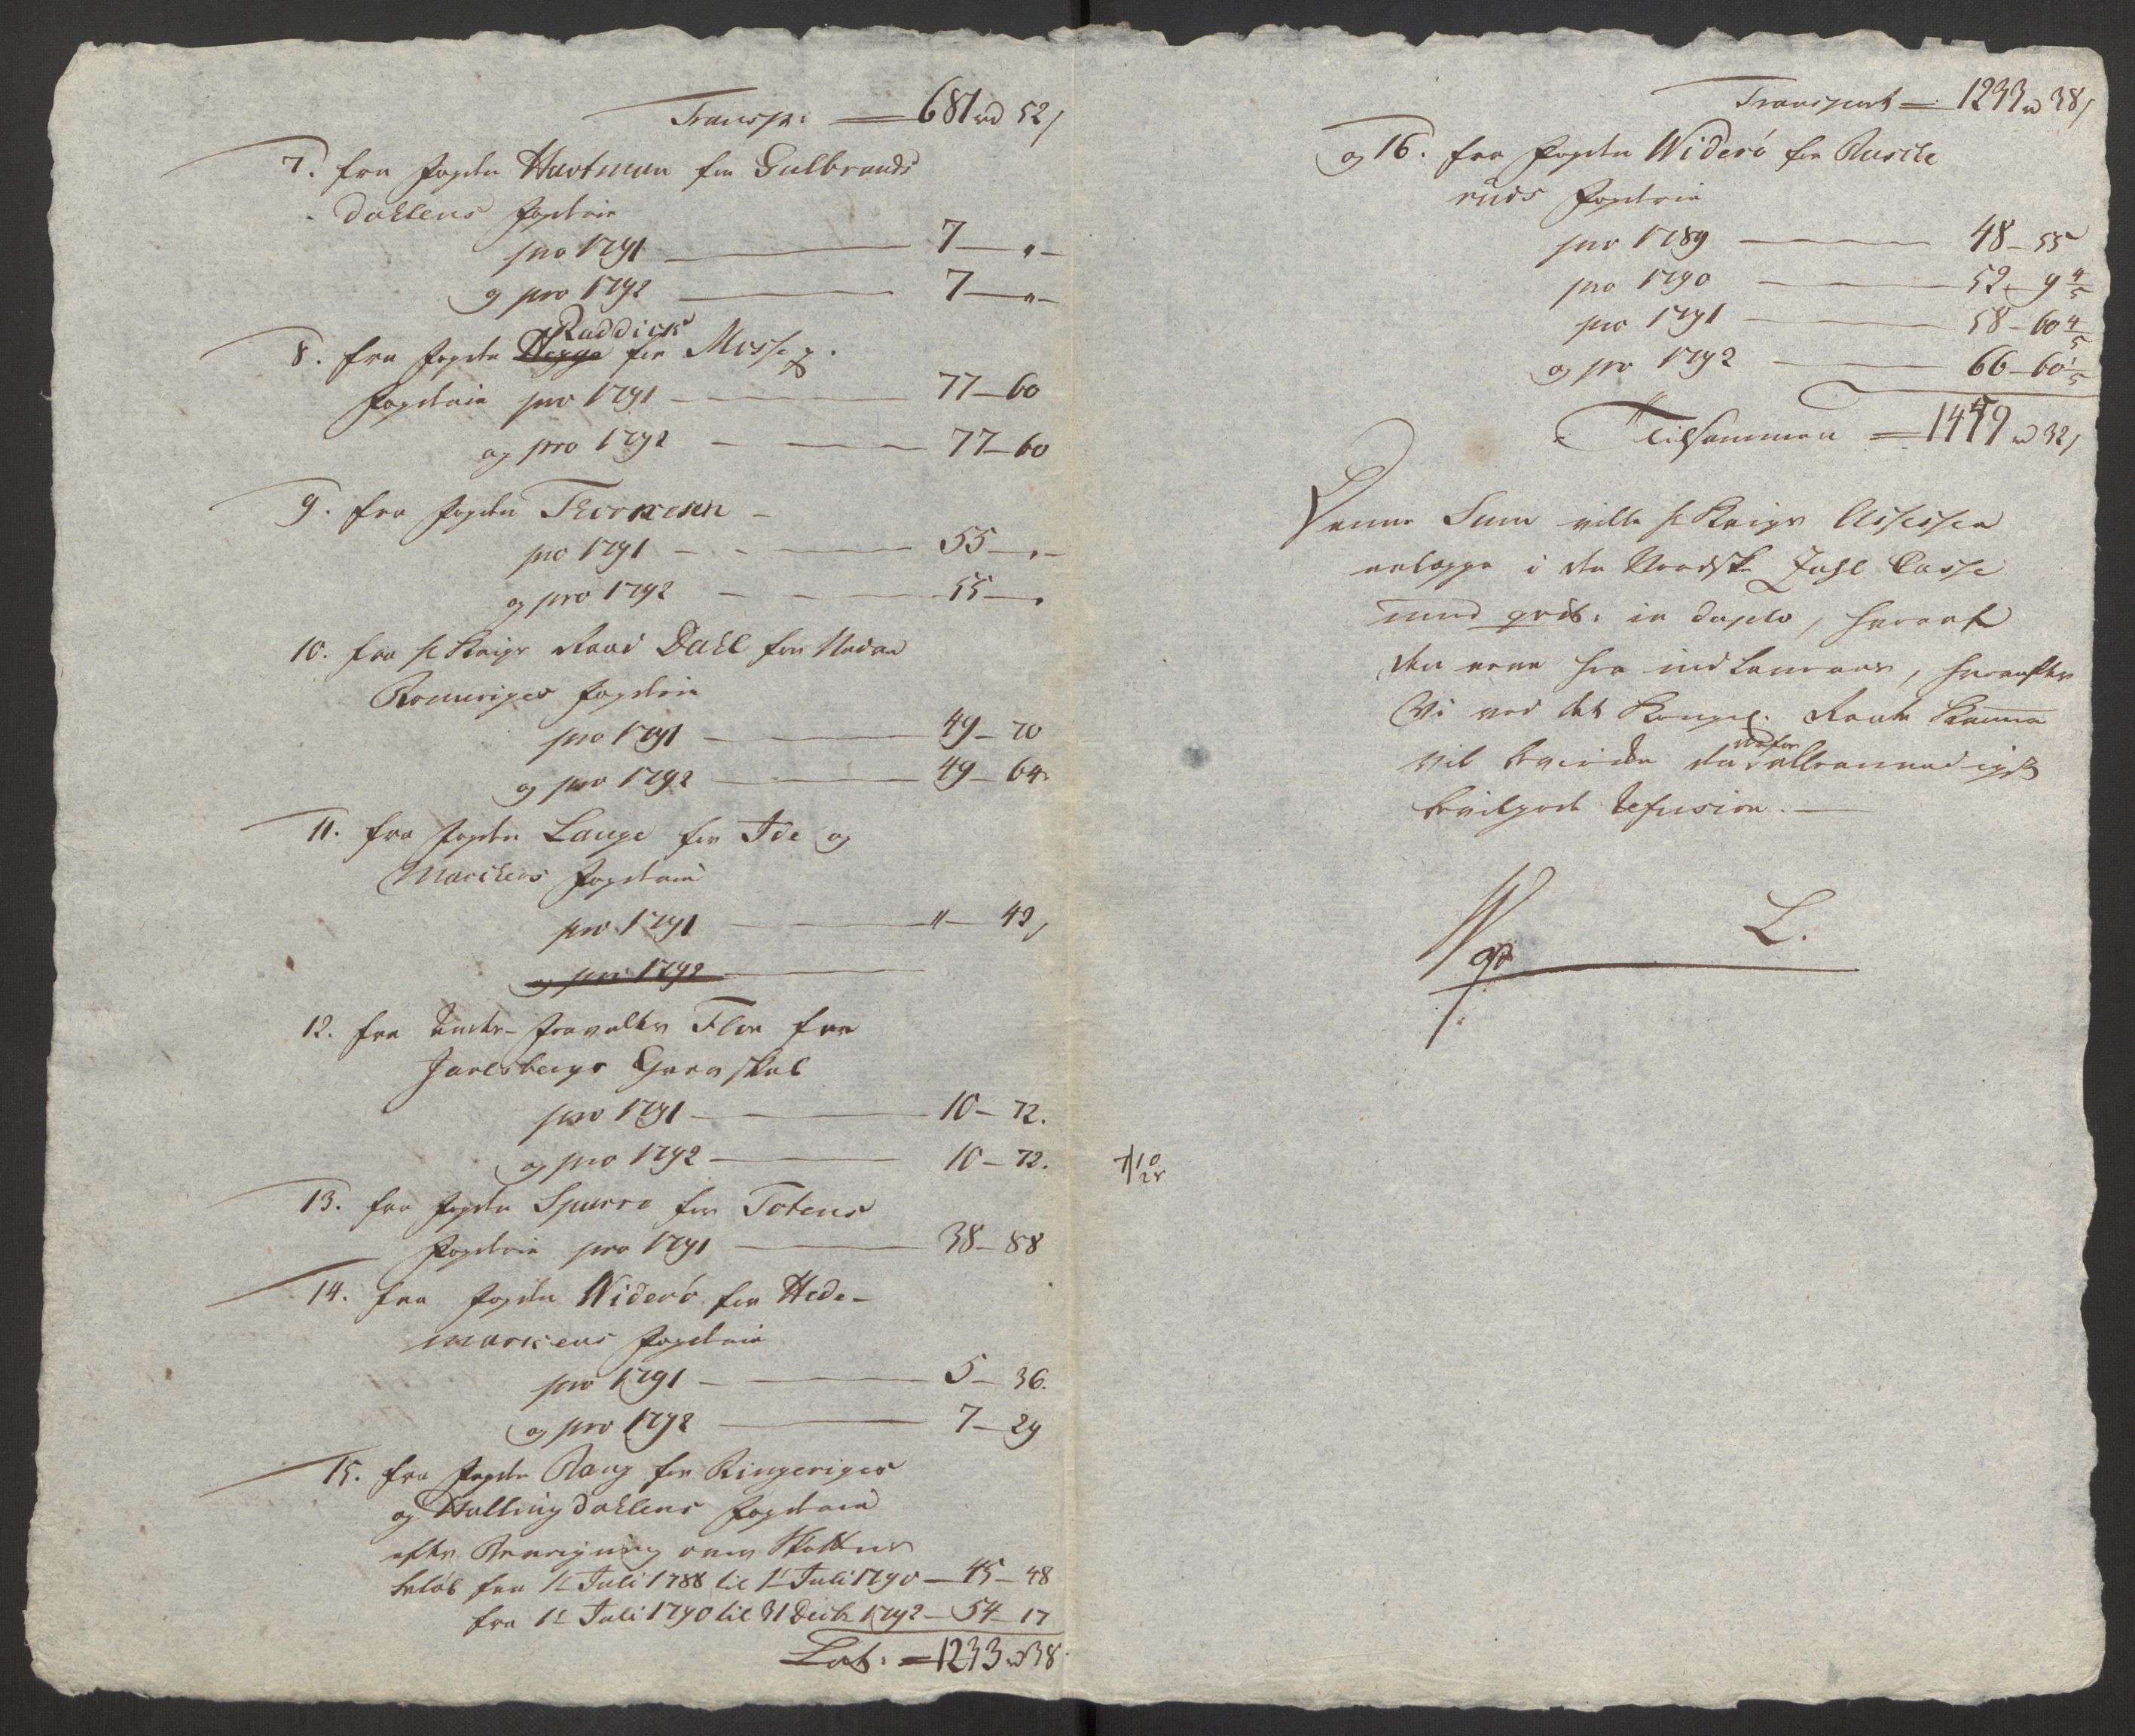 Transp: 681 rd 52 s
7. fra Fogden Hartman for Gulbrands
dahlens Fogderie
pro 1791 — 7 — " —
og pro 1792 — 7 — " —
Raddick
8. fra Fogden for Mosse
Fogderie pro 1791 — 77 — 60
og pro 1792 — 77 — 60
9. fra Fogden
pro 1791 — 55 — " —
og pro 1792 — 55 — "
10. fra Raad Dahl for Nedre
Romeriges Fogderie
pro 1791 — 49 — 70
og pro 1792 — 49 — 64
11. fra Fogden Lange for Ide og
Marckers Fogderie
pro 1791 — " — 42 s
og pro 1792 —
12. fra Under-Forvalter Flor for
Jarlsbergs Grevskab
pro 1791 — 10 — 72.
og pro 1792 — 10 — 72.
13. fra Fogden Spurre for Totens
Fogderie pro 1791 — 38 — 88
14. fra Fogden Niderö for Hede-
markens Fogderie
pro 1791 — 5 — 36.
og pro 1792 — 7 — 29
15. fra Fogden Rang for Ringeriges
og Hallingdahlens Fogderie
efter Beregning over Skatternes
beløb fra 1t Juli 1788 til 1t Juli 1790 — 45 — 48
fra 1t Juli 1790 til 31 Decbr 1792 — 54 — 17
Lat: = 1233 rd 38
Transport = 1233 rd 38 s
og 16. fra Fogden Niderö for Busche
ruds Fogderie
pro 1789 — 48 — 55
pro 1790 — 52 — 9 4/5
pro 1791 — 58 — 60 4/5
og pro 1792 — 66 — 60 1/5
Tilsammen = 1459 rd 32 s
Denne Sum ville Hr Krigs Assessor
erlægge i den Nordske Zahl Casse
mod qvit: in duplo, hvoraf
den eene her indleveres, hvorefter
Vi ved det Kongel. Rente Kammer
vil
derfor
allernaadigst
bevilgede Refusion. —
L.
7/10